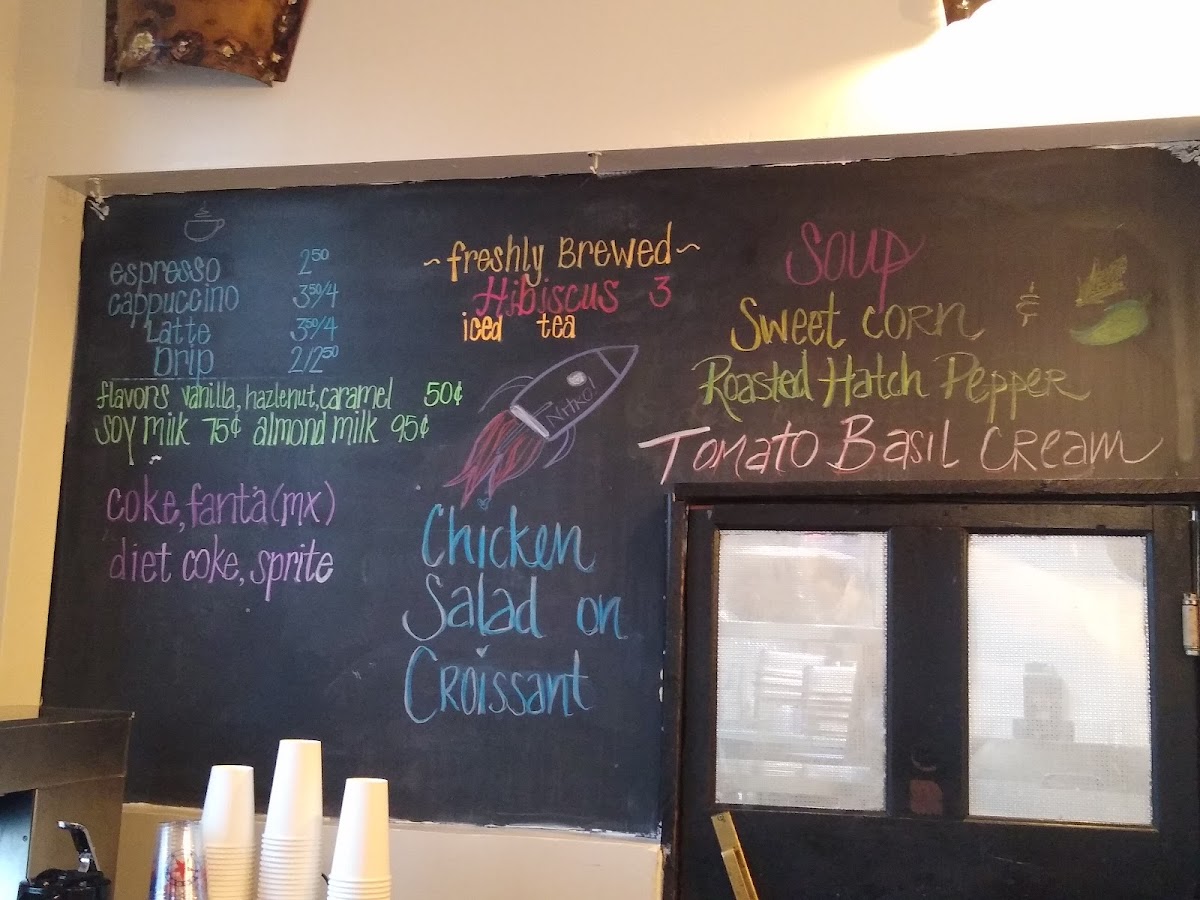 espresso 2⁵⁰
cappuccino 3⁵⁰/4
Latte 3⁵⁰/4
Drip 2/2⁵⁰
flavors vanilla, hazlenut, caramel 50¢
soy milk 75¢ almond milk 95¢
coke, fanta (mx)
diet coke, sprite
~freshly Brewed~
Hibiscus 3
iced tea
Chicken
Salad on
Croissant
Soup
Sweet corn &
Roasted Hatch Pepper
Tomato Basil Cream